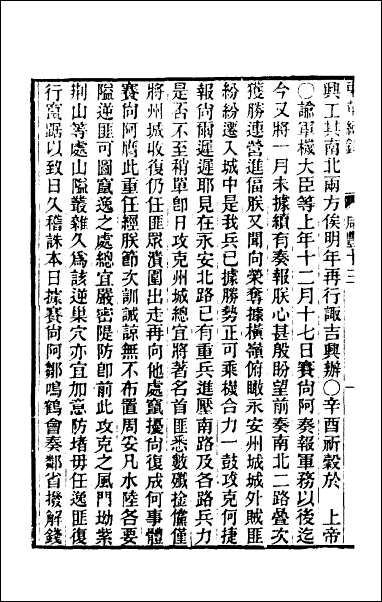 興工其南北兩方俟明年再行諏吉興辦○辛酉祈穀於　上帝
○諭軍機大臣等上年十二月十七日賽尙阿奏報軍務以後迄
今又將一月未據續有奏報朕心甚殷盼望前奏南北二路疊次
獲勝連營進偪朕又聞向榮奪據橫嶺俯瞰永安州城城外賊匪
紛紛遷入城中是我兵已據勝勢正可乘機合力一鼓攻克何捷
報尙爾遲遲耶見在永安北路已有重兵進壓南路及各路兵力
是否不至稍單卽日攻克州城總宜將著名首匪悉數殲捦儻僅
將州城收復仍任匪眾潰圍出走再向他處竄擾尙復成何事體
賽尙阿膺此重任經朕節次訓誡諒無不布置周妥凡水陸各要
隘逆匪可圖竄逸之處總宜嚴密隄防卽前此攻克之風門坳紫
荆山等處山隘叢雜久爲該逆巢穴亦宜加意防堵毋任逸匪復
行竄踞以致日久稽誅本日據賽尙阿鄒鳴鶴會奏鄰省撥解錢